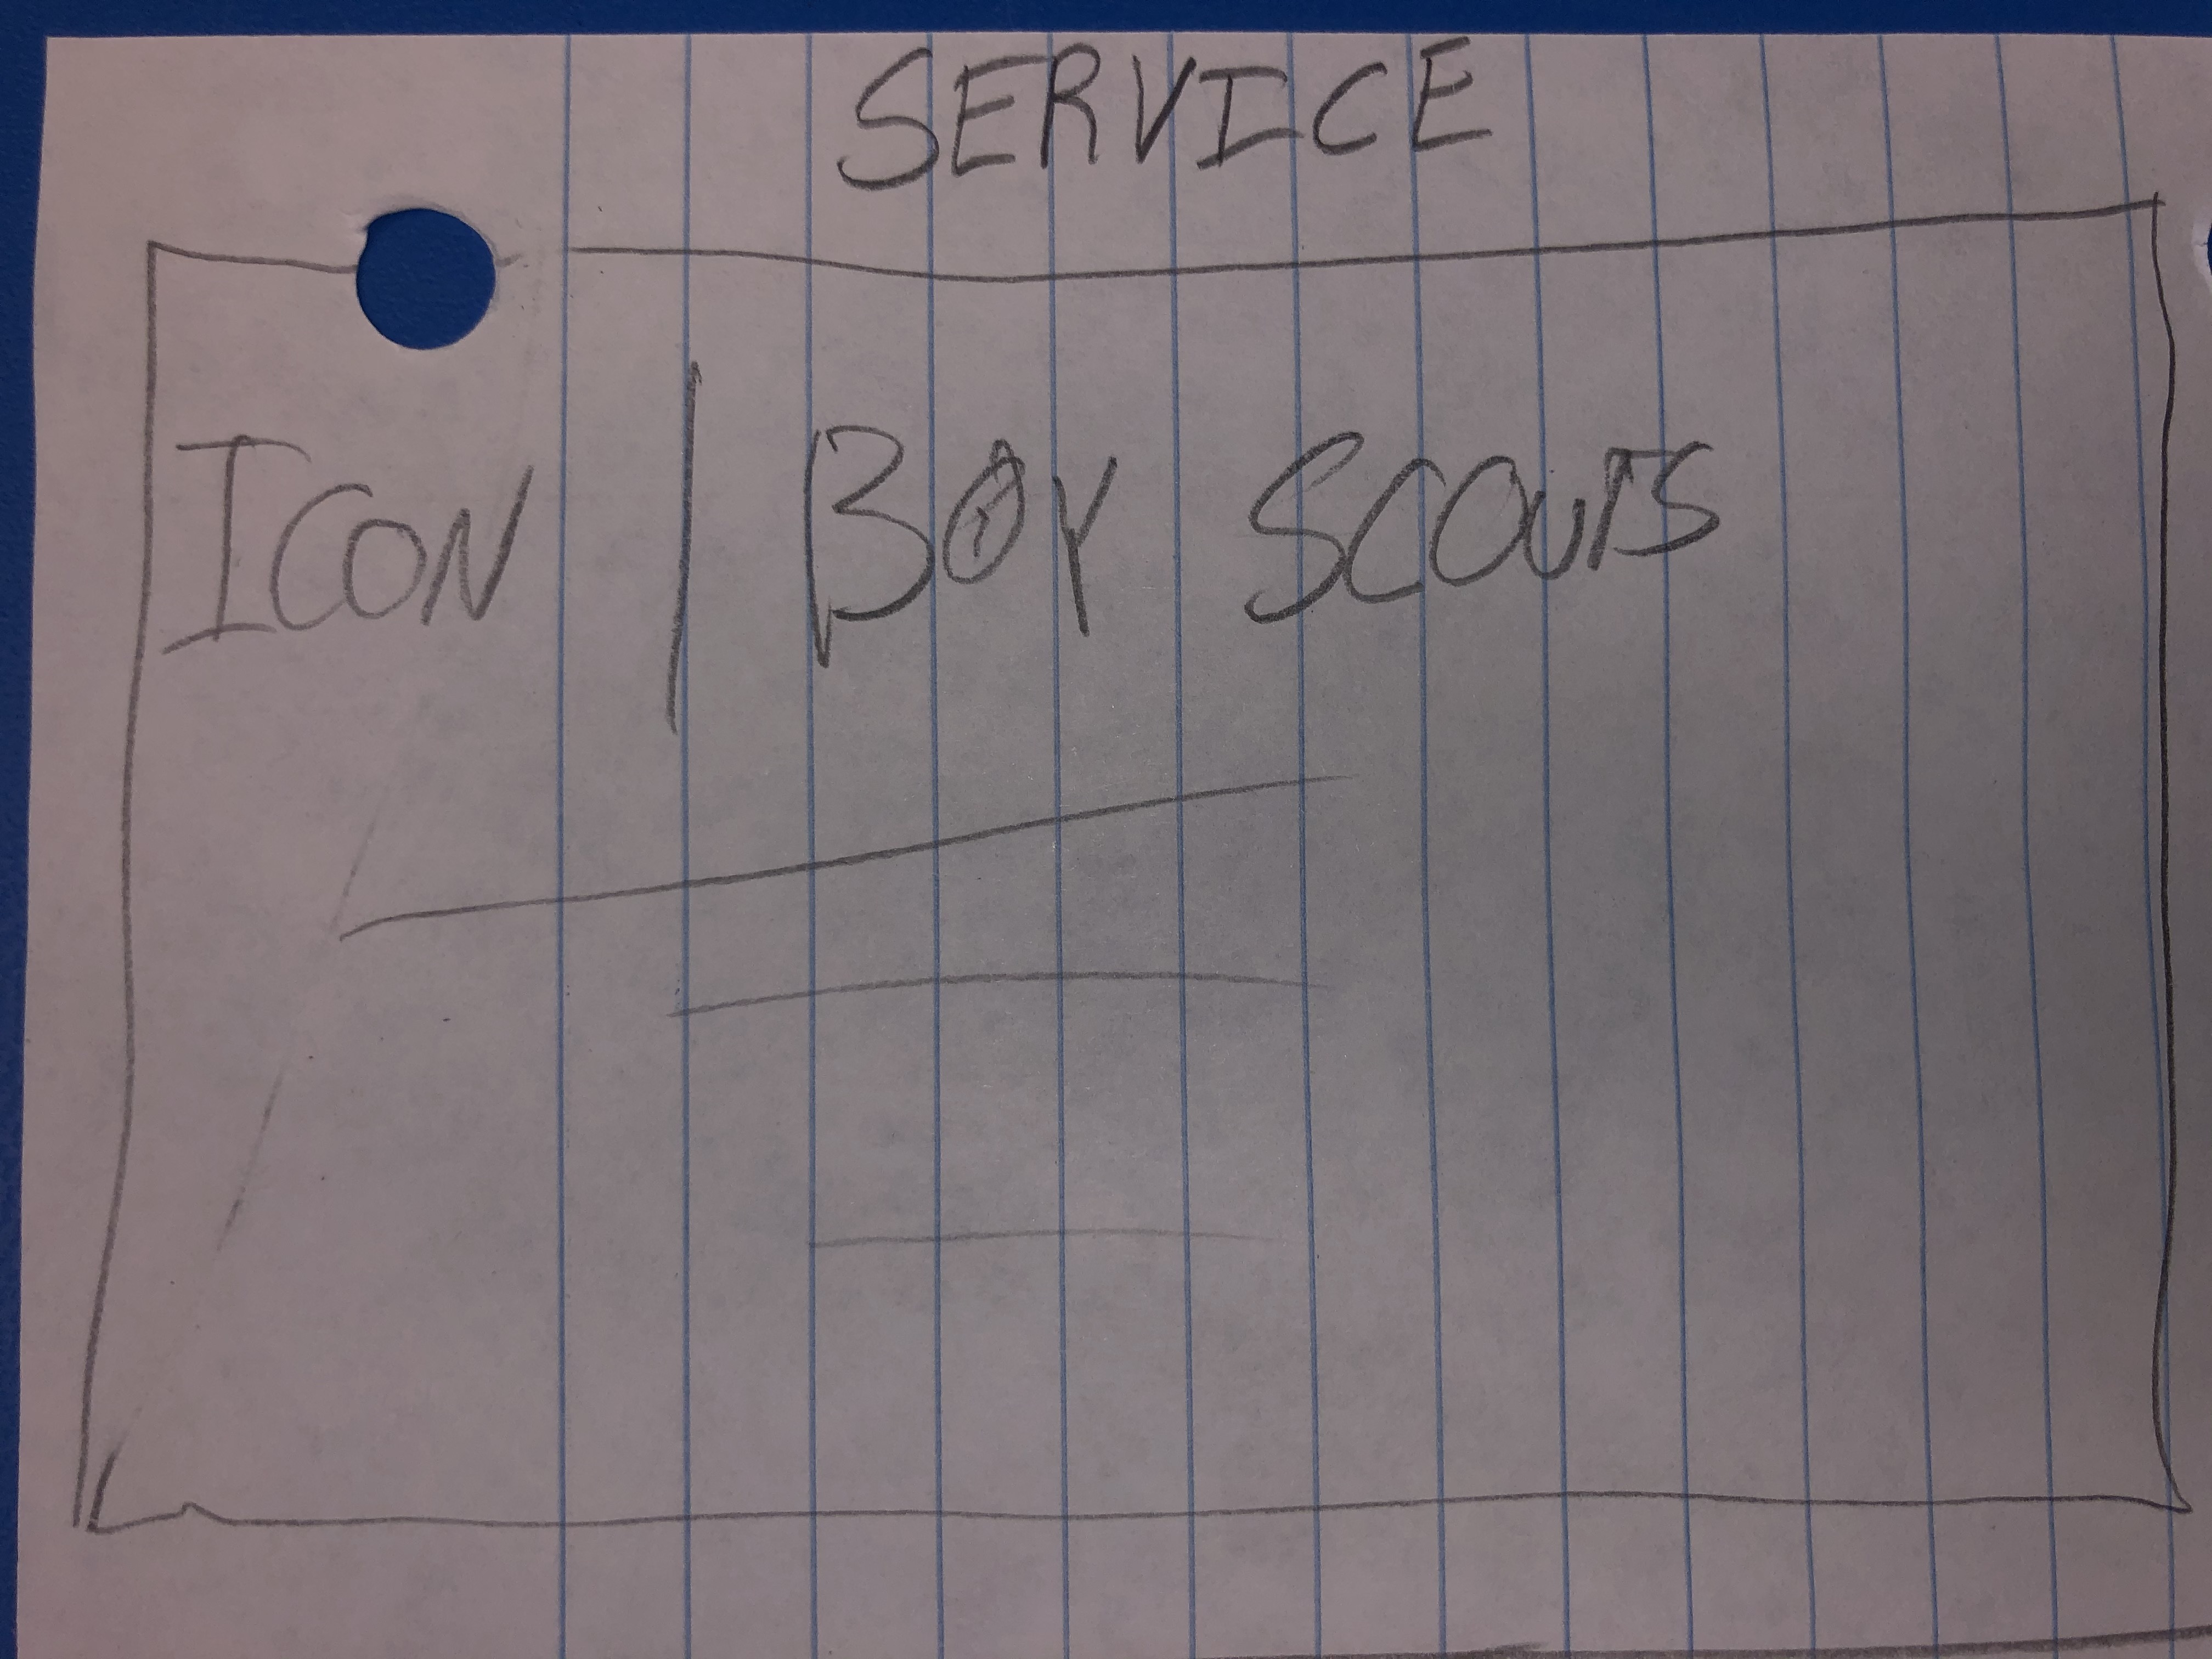 SERVICE
ICON | BOY SCOUTS